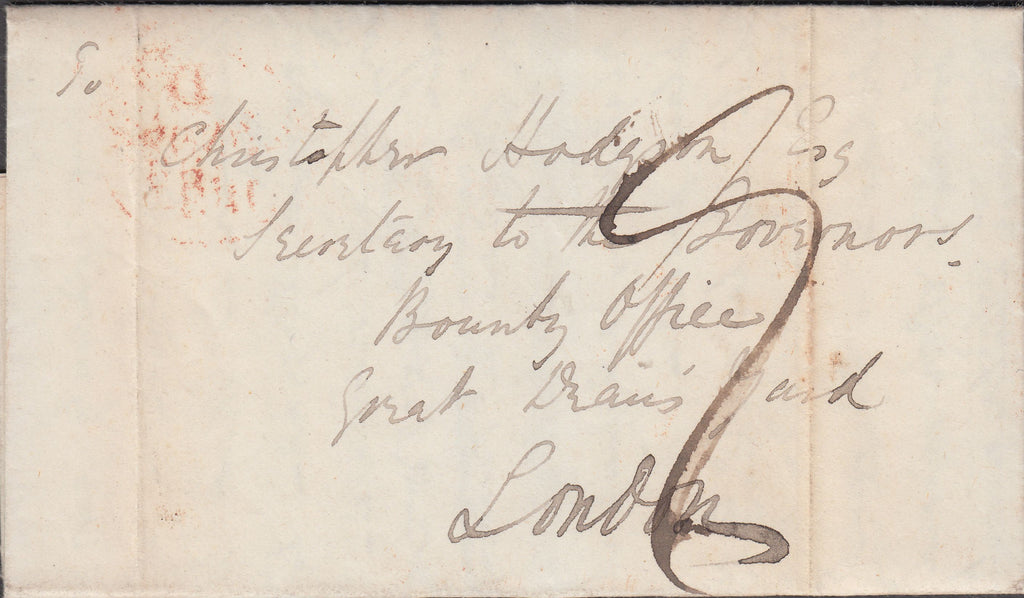 To
Christopher Hodgson Esq
Secretary to the Governors
Bounty Office
Great Dean's Yard
London